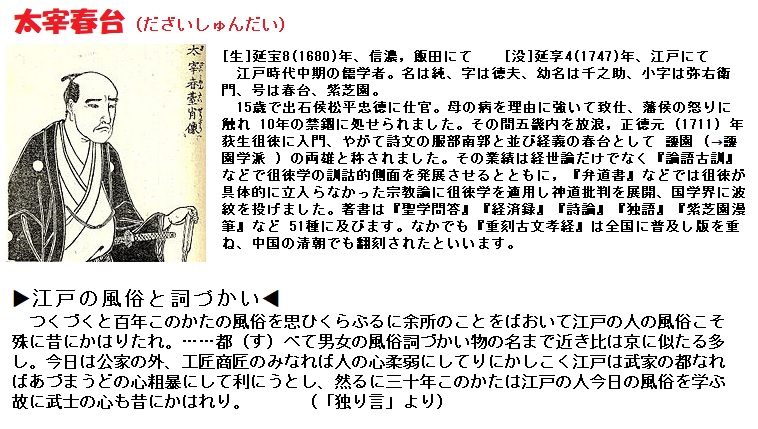 太宰春台（だざいしゅんだい）
太宰春臺肖像
[生]延宝8(1680)年、信濃，飯田にて　　[没]延享4(1747)年、江戸にて
江戸時代中期の儒学者。名は純、字は徳夫、幼名は千之助、小字は弥右衛
門、号は春台、紫芝園。
15歳で出石侯松平忠徳に仕官。母の病を理由に強いて致仕、藩侯の怒りに
触れ 10年の禁錮に処せられました。その間五畿内を放浪，正徳元（1711）年
荻生徂徠に入門、やがて詩文の服部南郭と並び経義の春台として 蘐園（→蘐
園学派 ）の両雄と称されました。その業績は経世論だけでなく『論語古訓』
などで徂徠学の訓詁的側面を発展させるとともに，『弁道書』などでは徂徠が
具体的に立入らなかった宗教論に徂徠学を適用し神道批判を展開、国学界に波
紋を投げました。著書は『聖学問答』『経済録』『詩論』『独語』『紫芝園漫
筆』など 51種に及びます。なかでも『重刻古文孝経』は全国に普及し版を重
ね、中国の清朝でも翻刻されたといいます。
▶江戸の風俗と詞づかい◀
つくづくと百年このかたの風俗を思ひくらぶるに余所のことをばおいて江戸の人の風俗こそ
殊に昔にかはりたれ。……都（す）べて男女の風俗詞づかい物の名まで近き比は京に似たる多
し。今日は公家の外、工匠商匠のみなれば人の心柔弱にしてりにかしこく江戸は武家の都なれ
ばあづまうどの心粗暴にして利にうとし、然るに三十年このかたは江戸の人今日の風俗を学ぶ
故に武士の心も昔にかはれり。　　　（「独り言」より）